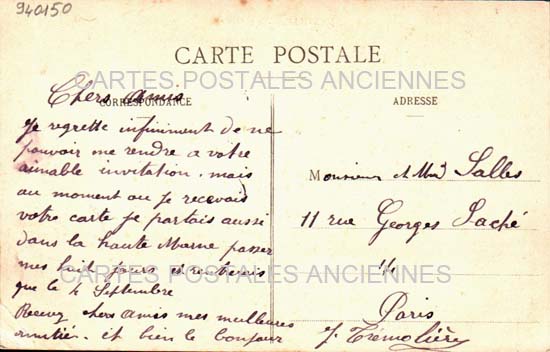 940150
CARTE POSTALE
CARTES POSTALES ANCIENNES
CORRESPONDANCE
ADRESSE
Chers Amis
Je regrette infiniment de ne
pouvoir me rendre a votre
aimable invitation. mais
au moment ou je recevais
votre carte je partais aussi
dans la haute Marne passer
mes huit jours et
CARTES POSTALES ANCIENNES
que le 4 Septembre
Recevez chers amis mes meilleures
amitiés. et bien le bonjour
Monsieur et Salles
11 rue Georges Saché
Paris
Trémolière